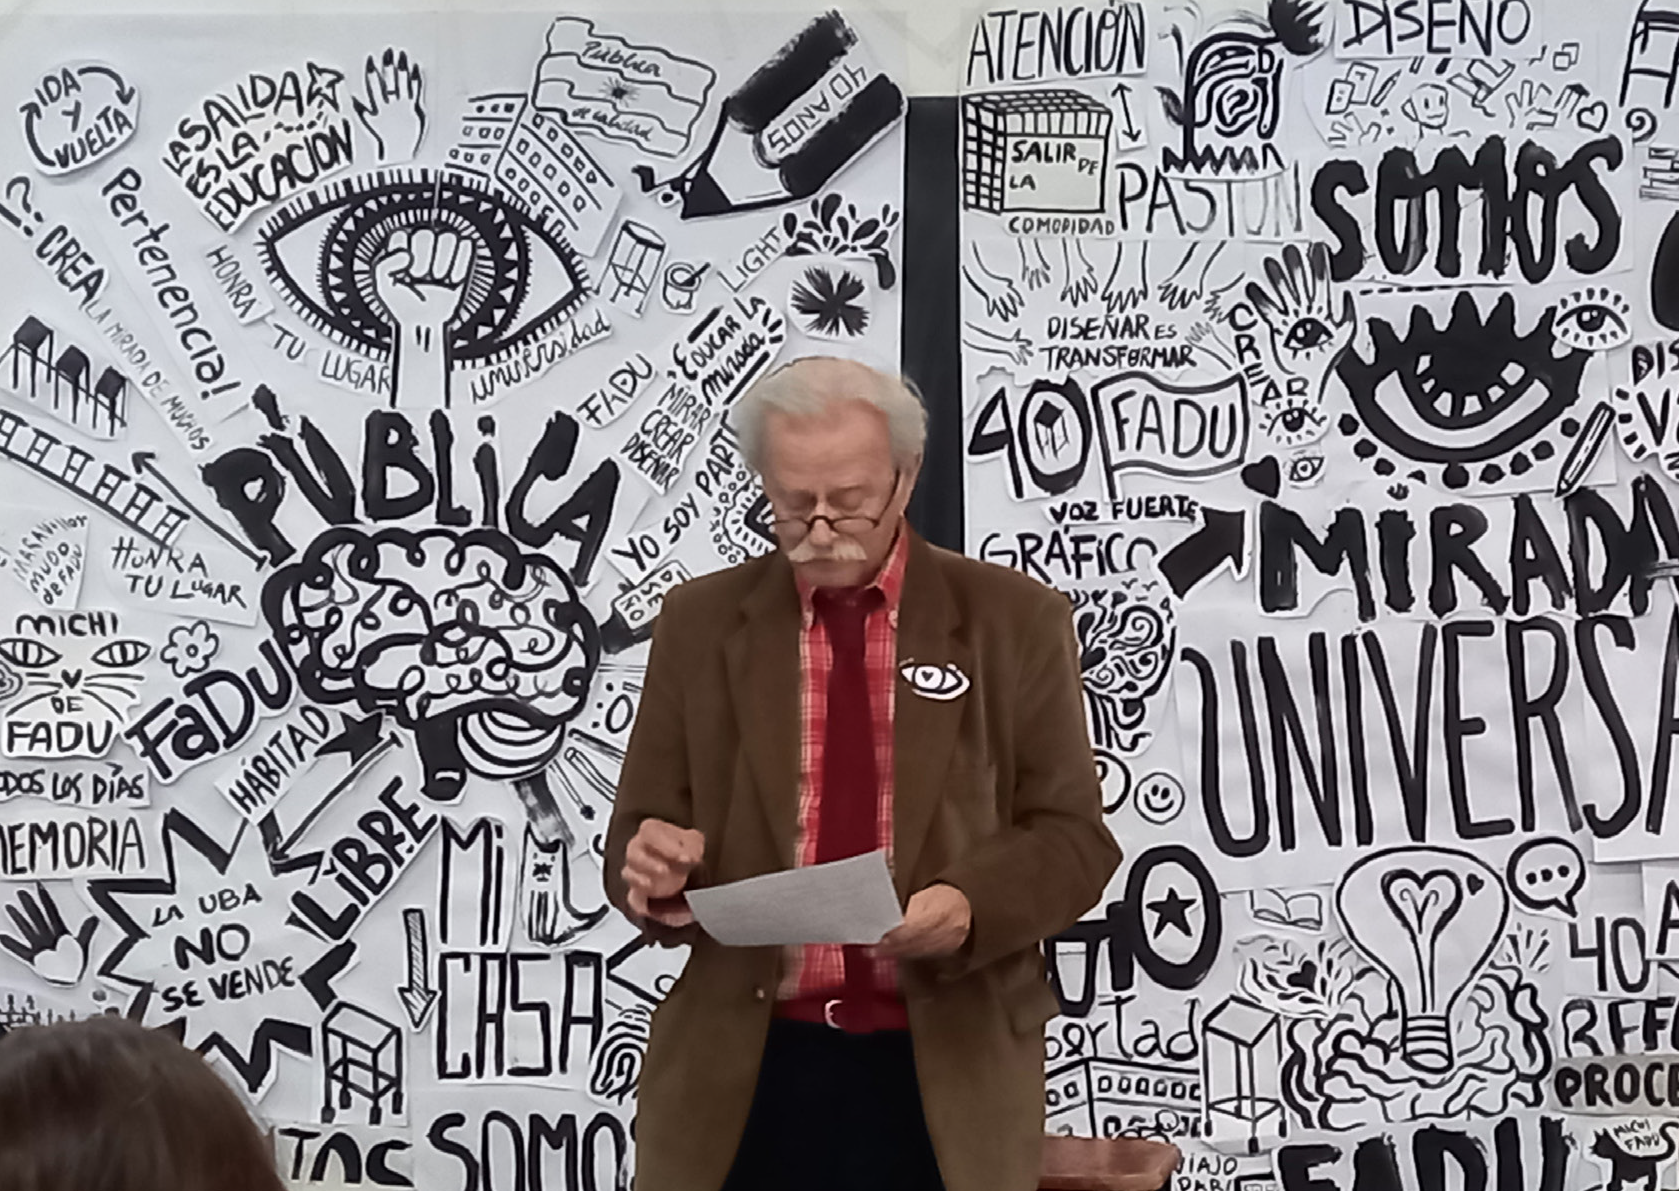 IDA
Y
VUELTA
LA SALIDA
ES LA
EDUCACIÓN
Pública
de calidad
40 AÑOS
¡?.
CREA
LA MIRADA DE MUCHOS
Pertenencia!
HONRA
TU
LUGAR
universidad
LIGHT
FADU
¡Educar la
mirada!
MIRAR
CREAR
DISEÑAR
YO SOY PARTE
PÚBLICA
MUNDO
de FADU
HONRA
TU LUGAR
MICHI
DE
FADU
FaDU
HÁBITAD
LIBRE
ODOS LOS DÍAS
MEMORIA
LA UBA
NO
SE VENDE
Mi
CASA
SOMO
ATENCIÓN
SALIR DE
LA
COMODIDAD
PASIÓN
DISEÑO
SOMOS
DISEÑAR ES
TRANSFORMAR
CREAR
40
FADU
VOZ FUERTE
GRÁFICO
MIRADA
UNIVERSA
40 A
PROCE
FADU
MICHI
FADU
VIAJO